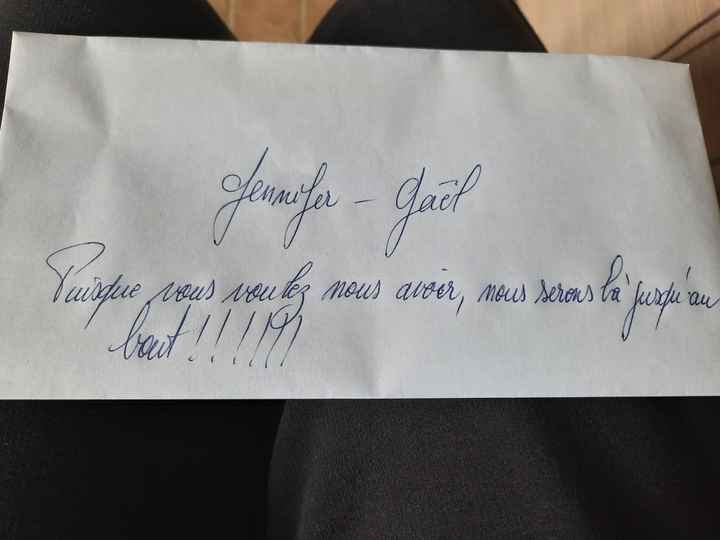 Jennifer - Gaël
Puisque vous voulez nous avoir, nous serons là jusqu'au
bout !!!!!!!